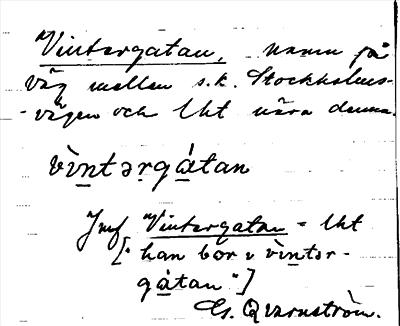 Vintergatan, namn på
väg mellan s.k. Stockholms-
-vägen och Uht nära denna.
vìntərgátan
Jmf Vintergatan = Uht
[" han bor i vìntər-
gátan "]
G. Qvarnström.